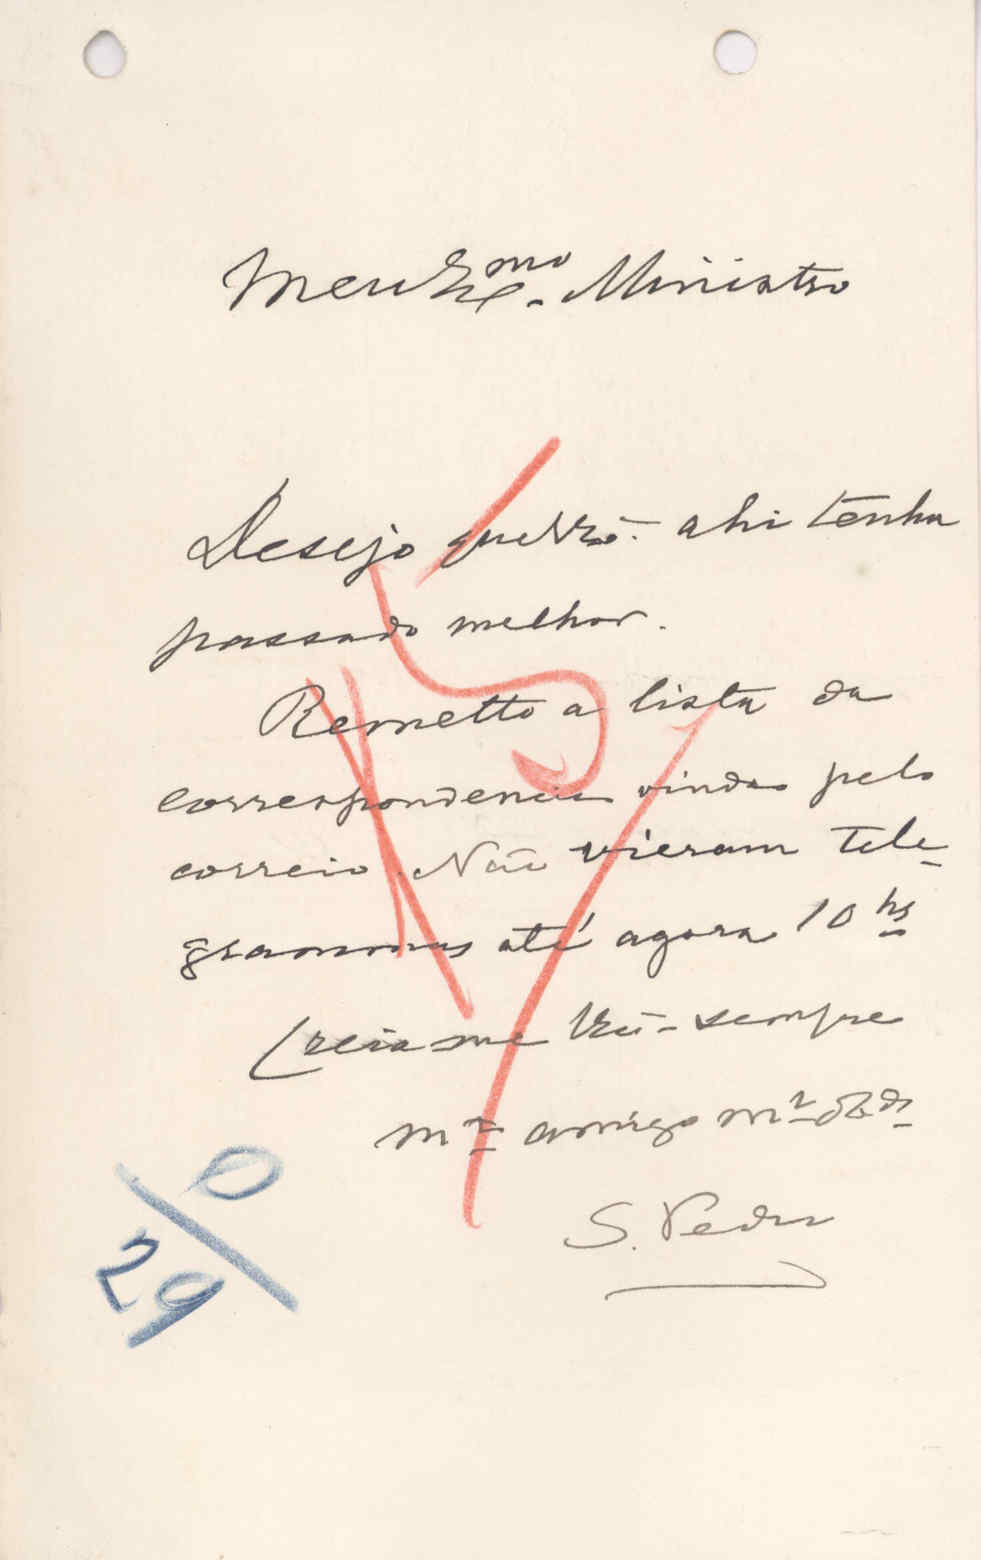 Meu Exmo. Ministro
Desejo que V. Exª. ahi tenha
passado melhor.
Remetto a lista da
correspondencia vinda pelo
correio. Não vieram tele-
grammas até agora 10 hs
Creia-me sempre
mto amigo mto
S. Pedro
29/0